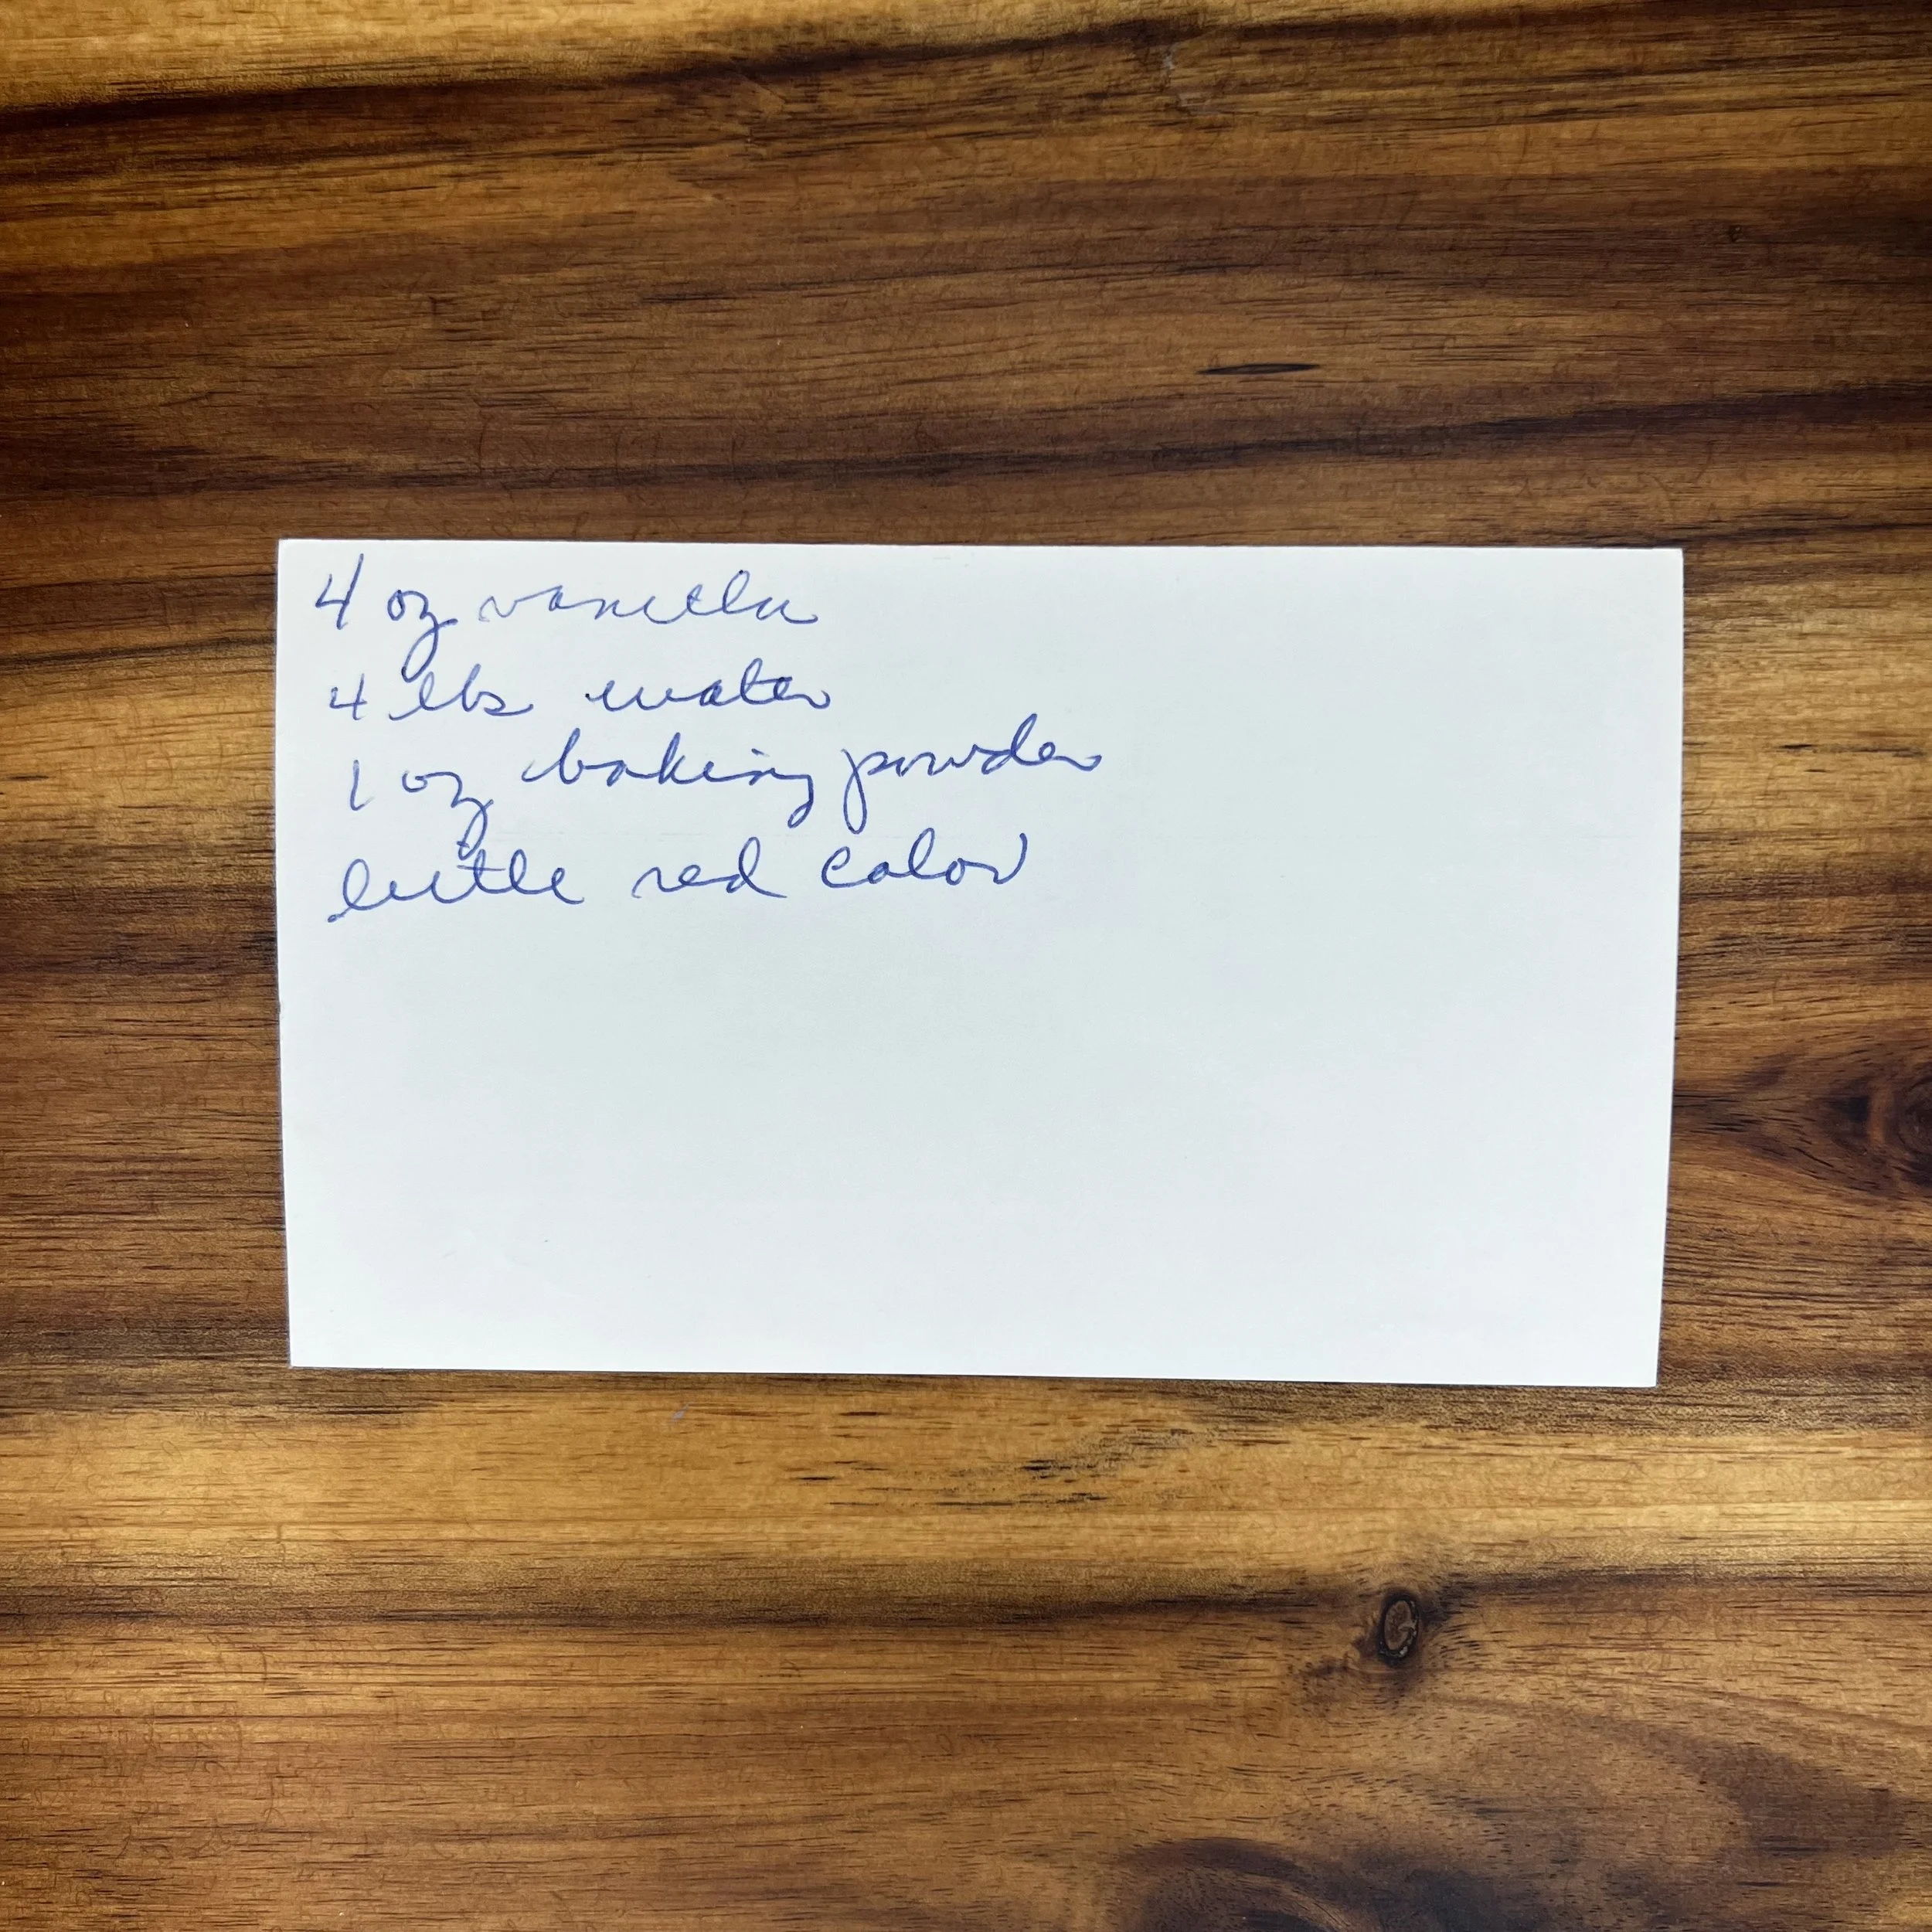 4 oz vanilla
4 lbs water
1 oz baking powder
little red color